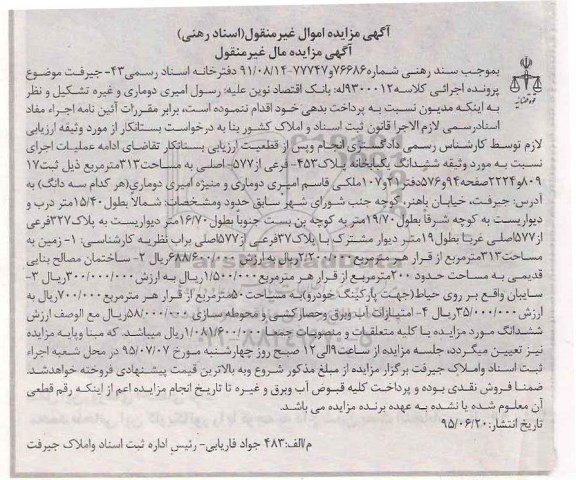 آگهی مزایده اموال غیرمنقول(اسناد رهنی)
آگهی مزایده مال غیرمنقول
بموجب سند رهنی شماره۷۶۶۸۶و۷۷۷۴۷-۹۱/۰۸/۱۴ دفترخانه اسناد رسمی۴۳- جیرفت موضوع
پرونده اجرائی کلاسه۹۳۰۰۰۱۲له بانک اقتصاد نوین علیه: رسول امیری دوماری و غیره تشکیل و نظر
به اینکه مدیون نسبت به پرداخت بدهی خود اقدام ننموده است، برابر مقررات آئین نامه اجراء مفاد
اسنادرسمی لازم الاجرا قانون ثبت اسناد و املاک کشور بنا به درخواست بستانکار از مورد وثیقه ارزیابی
لازم توسط کارشناس رسمی دادگستری انجام وپس از قطعیت ارزیابی بستانکار تقاضای ادامه عملیات اجرای
نسبت به مورد وثیقه ششدانگ یکبابخانه پلاک۴۵۳- فرعی از۵۷۷- اصلی به مساحت۳۱۳مترمربع ذیل ثبت۱۷
۸۰۹و۲۲۲۴صفحه۹۴و۵۷۶دفتر۹۱و۱۰۷ملکی قاسم امیری دوماری و منیژه امیری دوماری(هر کدام سه دانگ) به
آدرس: جیرفت، خیابان باهنر، کوچه جنب شورای شهر سابق حدود ومشخصات: شمالاً بطول۱۵/۴۰متر درب و
دیواریست به کوچه شرقاً بطول۱۹/۷۰متر به کوچه بن بست جنوباً بطول۱۶/۷۰متر دیواریست به پلاک۳۲۷فرعی
از۵۷۷اصلی غرباً بطول۱۹متر دیوار مشترک با پلاک۳۷فرعی از۵۷۷اصلی برابر نظریه کارشناسی: ۱- زمین به
مساحت۳۱۳مترمربع از قرار هر مترمربع۲/۲۰۰/۰۰۰ریال به ارزش۶۸۸/۶۰۰/۰۰۰ریال ۲- ساختمان مصالح بنایی
قدیمی به مساحت حدود ۲۰۰مترمربع از قرار هر مترمربع۱/۵۰۰/۰۰۰ریال به ارزش۳۰۰/۰۰۰/۰۰۰ریال ۳-
سایبان واقع بر روی حیاط(جهت پارکینگ خودرو)به مساحت۵۰مترمربع از قرار هر مترمربع۷۰۰/۰۰۰ریال به
ارزش۳۵/۰۰۰/۰۰۰ریال ۴- امتیازات آب وبرق وحصارکشی و محوطه سازی۵۸/۰۰۰/۰۰۰ریال مع الوصف ارزش
ششدانگ مورد مزایده با کلیه متعلقات و منصوبات جمعا۱/۰۸۱/۶۰۰/۰۰۰ریال میباشد. که مبنا وپایه مزایده
نیز تعیین میگردد، جلسه مزایده از ساعت۹الی۱۲ صبح روز چهارشنبه مورخ ۹۵/۰۷/۰۷ در محل شعبه اجراء
ثبت اسناد واملاک جیرفت برگزار مزایده از مبلغ مذکور شروع وبه بالاترین قیمت پیشنهادی فروخته خواهدشد.
ضمناً فروش نقدی بوده و پرداخت کلیه قبوض آب وبرق و غیره تا تاریخ انجام مزایده اعم از اینکه رقم قطعی
آن معلوم شده یا نشده به عهده برنده مزایده می باشد.
تاریخ انتشار:۹۵/۰۶/۲۰
م/الف:۴۸۳ جواد فاریابی- رئیس اداره ثبت اسناد واملاک جیرفت